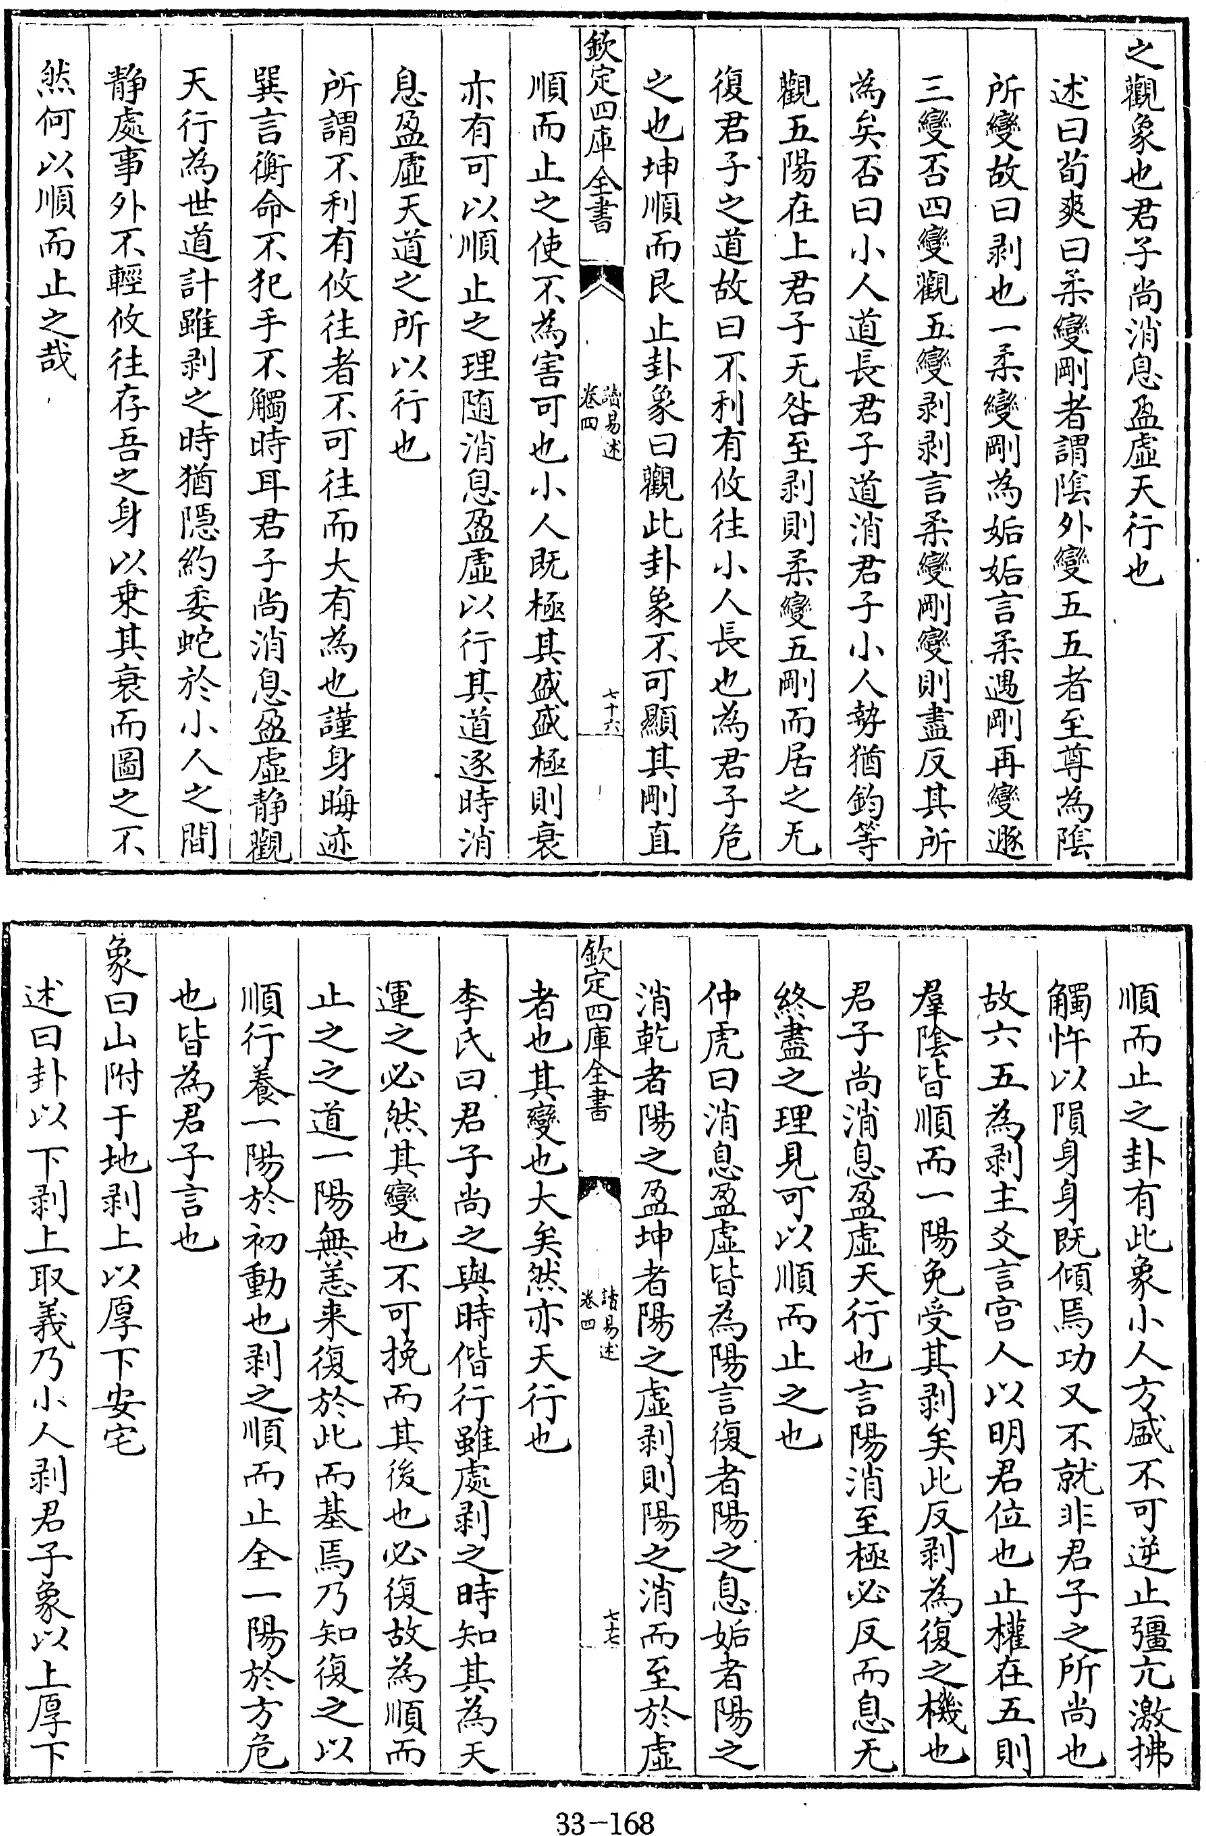 之觀象也君子尚消息盈虛天行也
述曰荀爽曰柔變剛者謂陰外變五五者至尊為陰
所變故曰剥也一柔變剛為姤姤言柔遇剛再變遯
三變否四變觀五變剥剥言柔變剛變則盡反其所
為矣否曰小人道長君子道消君子小人勢猶鈞等
觀五陽在上君子无咎至剥則柔變五剛而居之无
復君子之道故曰不利有攸往小人長也為君子危
之也坤順而艮止卦象曰觀此卦象不可顯其剛直
欽定四庫全書
讀易述
卷四
七十六
順而止之使不為害可也小人既極其盛盛極則衰
亦有可以順止之理随消息盈虛以行其道逐時消
息盈虛天道之所以行也
所謂不利有攸往者不可往而大有為也謹身晦迹
巽言衡命不犯手不觸時耳君子尚消息盈虛静觀
天行為世道計雖剥之時猶隱約委蛇於小人之間
静處事外不輕攸往存吾之身以乗其衰而圖之不
然何以順而止之哉
順而止之卦有此象小人方盛不可逆止彊亢激拂
觸忤以隕身身既傾焉功又不就非君子之所尚也
故六五為剥主爻言宮人以明君位也止權在五則
羣陰皆順而一陽免受其剥矣此反剥為復之機也
君子尚消息盈虛天行也言陽消至極必反而息无
終盡之理見可以順而止之也
仲虎曰消息盈虛皆為陽言復者陽之息姤者陽之
消乾者陽之盈坤者陽之虛剥則陽之消而至於虛
欽定四庫全書
讀易述
卷四
七十七
者也其變也大矣然亦天行也
李氏曰君子尚之與時偕行雖處剥之時知其為天
運之必然其變也不可挽而其後也必復故為順而
止之之道一陽無恙来復於此而基焉乃知復之以
順行養一陽於初動也剥之順而止全一陽於方危
也皆為君子言也
象曰山附于地剥上以厚下安宅
述曰卦以下剥上取義乃小人剥君子象以上厚下
33-168